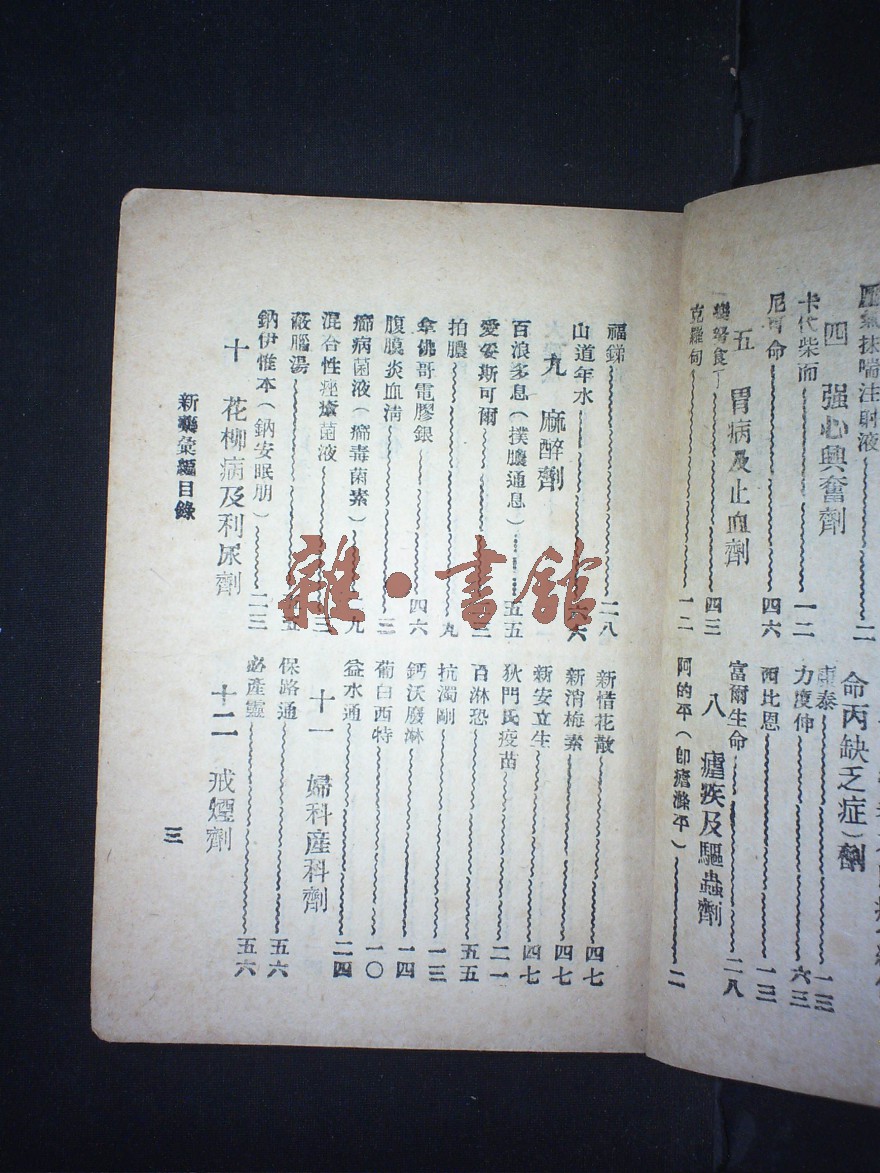 四　强心興奮劑
卡代柴而　一二
尼可命　四六
五　胃病及止血劑
四三
克羅甸　一二
命丙缺乏症）劑
康泰　一三
力度伸　六三
比恩　一三
富爾生命　二八
八　瘧疾及驅蟲劑
阿的平（即瘧滌平）　二
福錦　二八
山道年水　六六
九　麻醉劑
百浪多息（撲膿通息）　五五
愛妥斯可爾
拍膿　九
拿佛哥電膠銀　四六
腹膜炎血清　三
癤病菌液（癤毒菌素）　九
混合性痤瘡菌液　三
蔽腦湯　五
鈉伊惟本（鈉安眠朋）　二三
十　花柳病及利尿劑
新惜花散　四七
新消梅素　四七
新安立生　四七
狄門氏疫苗　二一
百淋恐　五五
抗濁剛　一三
鈣沃廢淋　一四
葡白西特　一〇
益水通　二四
十一　婦科產科劑
保路通　五六
必產靈　五六
十二　戒煙劑
新藥彙編目錄
三
雜·書館